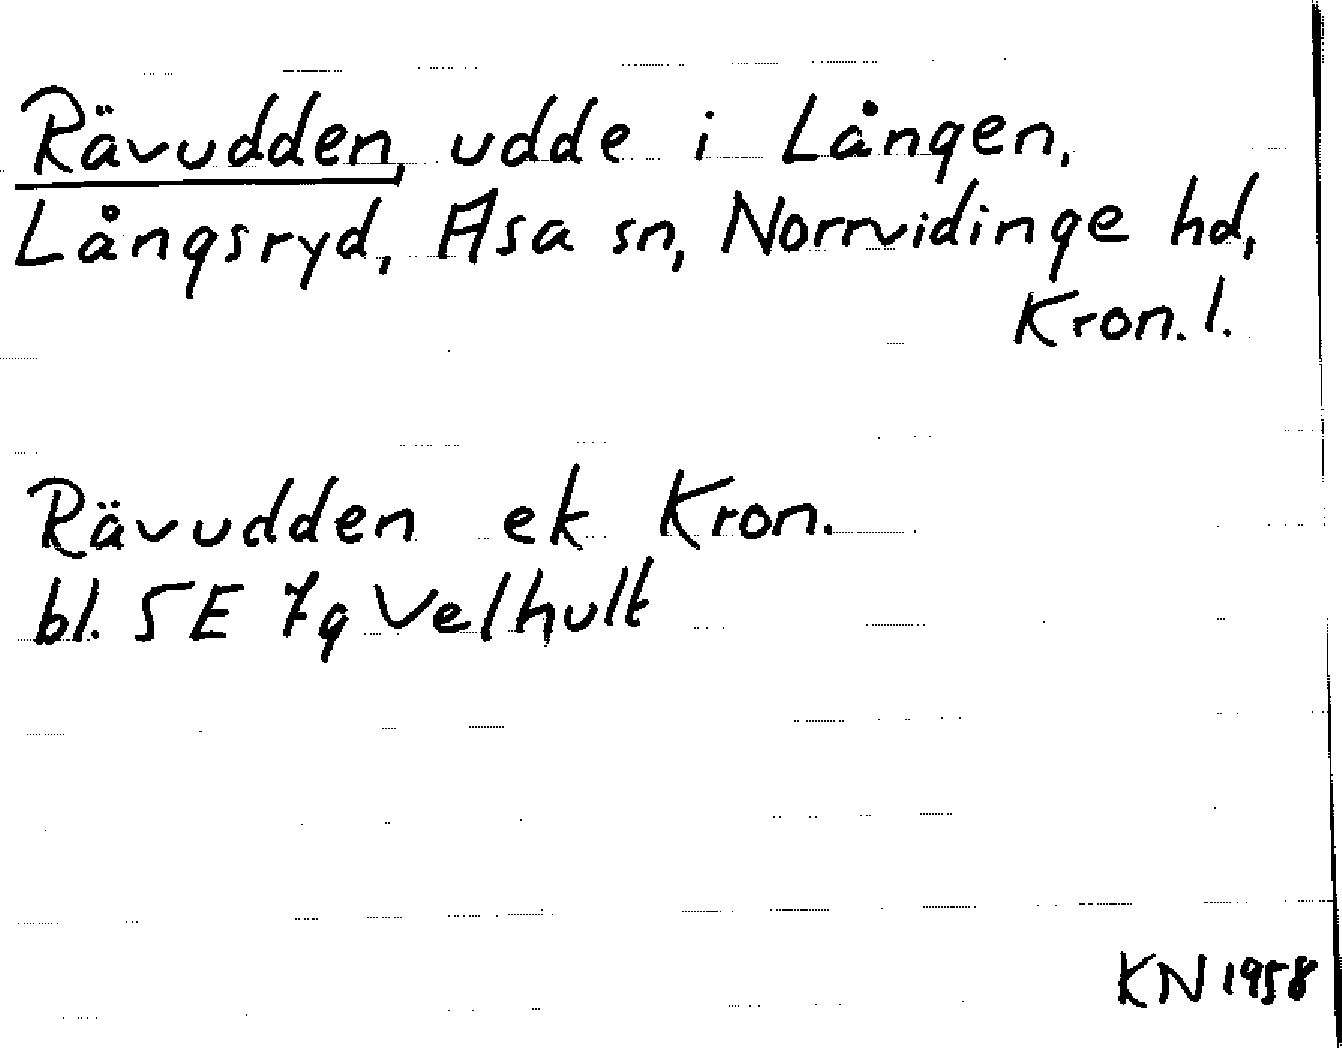 Rävudden, udde i Lången,
Långsryd, Asa sn, Norrvidinge hd,
Kron. l.
Rävudden ek Kron.
bl. 5E 7g Velhult
KN 1958